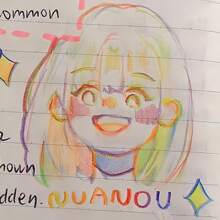 common
nown
dden. NUANOU